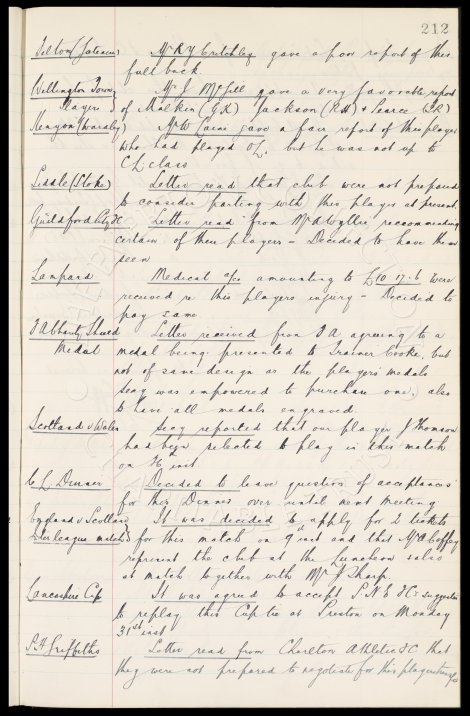 212
Felton (Gateshead) Mr R Y Critchley gave a poor report of this
full back.
Wellington Town Mr J McGill gave a very favourable report
Players of Malkin (G.K) Jackson (R.H) & Pearce (I.R)
Kenyon (Darnley) Mr W Caine gave a fair report of this player
who had played O.L. but he was not up to
C.L. class
Liddle (Stoke) Letter read that club were not prepared
to consider parting with this player at present.
Guildford City FC Letter read from Mr A Wyllie recommending
certain of their players – Decided to have them
seen
Lampard Medical a/cs amounting to £10 17. 6 were
received re this players injury – Decided to
pay same.
F A Charity Shield Letter received from F A agreeing to a
Medal medal being presented to Trainer Cooke, but
not of same design as the players' medals
Secy was empowered to purchase one, also
to have all medals engraved.
Scotland v Wales Secy reported that our player J Thomson
had been selected to play in this match
on 26th inst
C. L. Dinner Decided to leave question of acceptances
for this Dinner over until next meeting
England v Scotland It was decided to apply for 2 tickets
Inter league match for this match on 9th inst and that Mr Coffey
represent the club at the Luncheon & also
at match together with Mr J Sharp.
Lancashire Cup It was agreed to accept P.N.E. FC's suggestion
to replay this Cup tie at Preston on Monday
31st inst
P.H. Griffiths Letter read from Charlton Athletic FC that
they were not prepared to negotiate for this players transfer